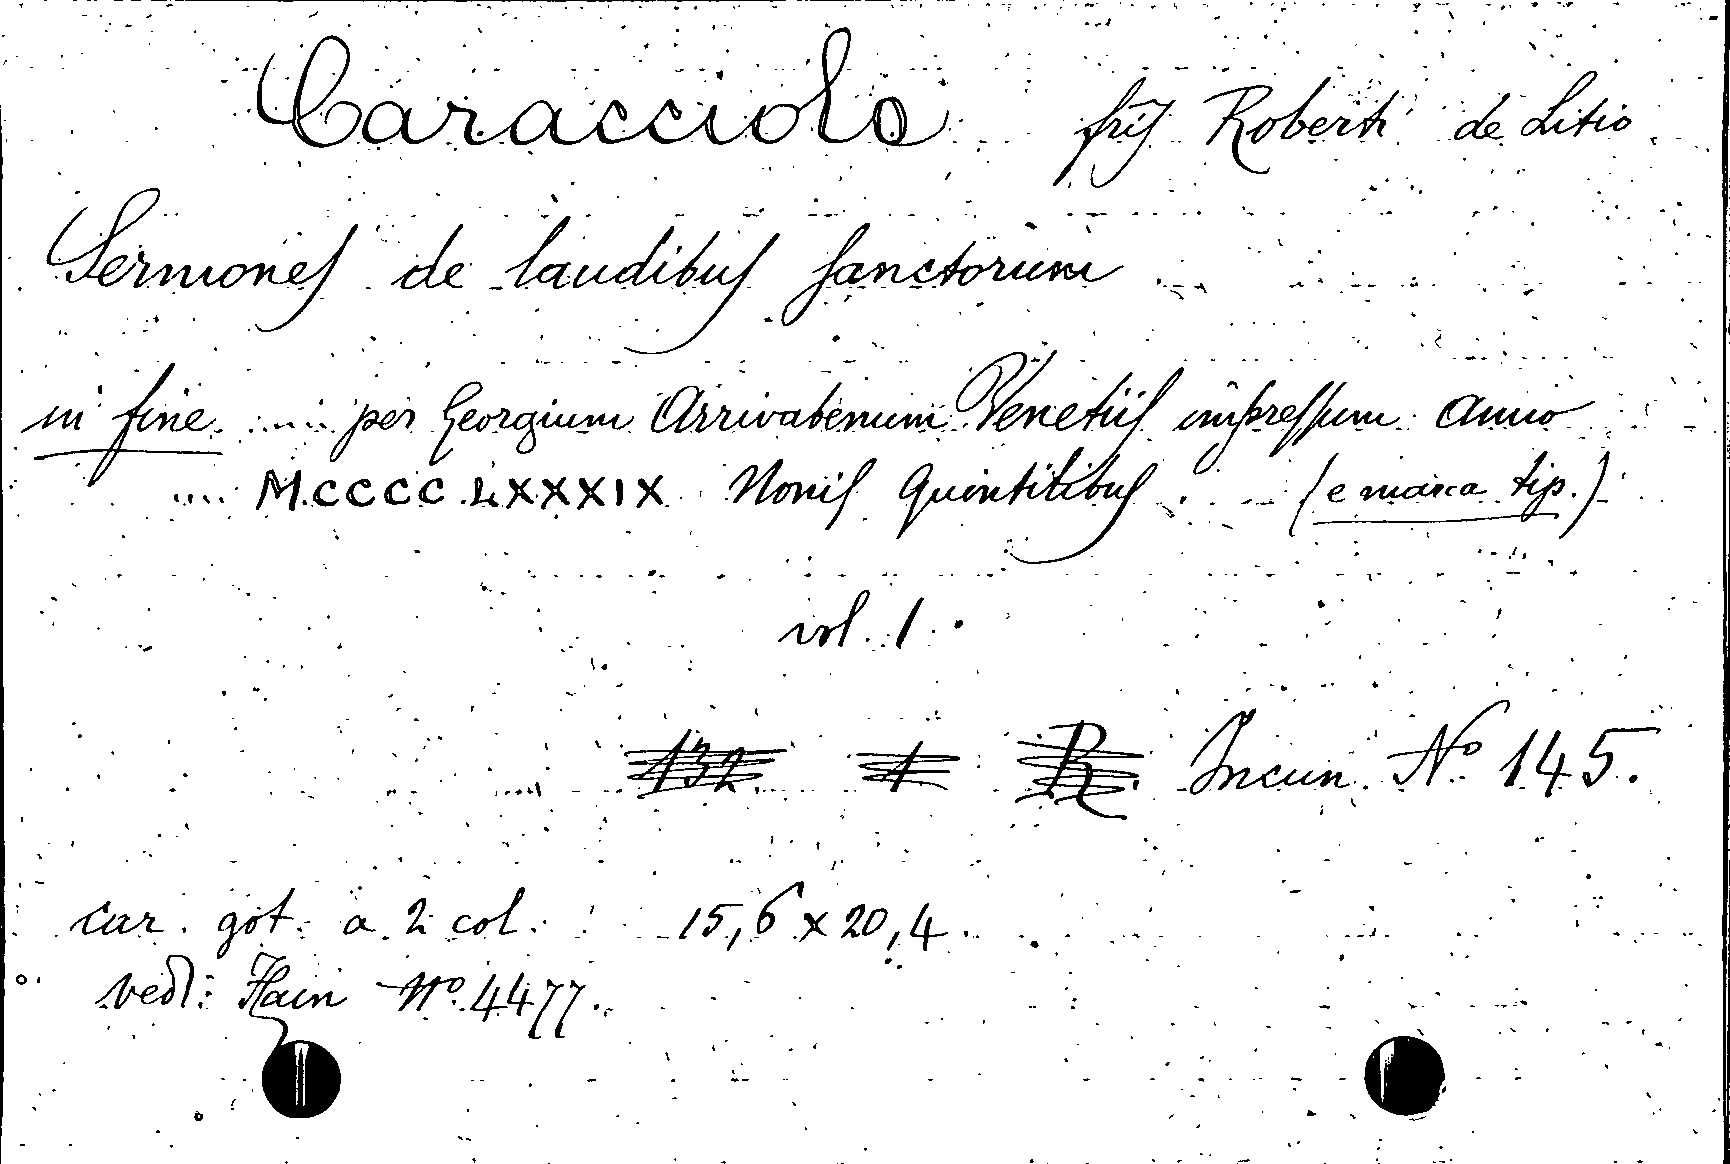 Caracciolo frīs Roberti de Litio
Sermones de laudibus sanctorum
in fine .... per Georgium Arrivabenum Venetiis impressum anno
.... M.CCCC.LXXXIX Nonis Quintilibus. (e marca tip.)
vol. 1.
132 1 R Incun. Nº 145.
car. got. a 2 col. 15,6 x 20,4.
vedi: Hain Nº 4477.